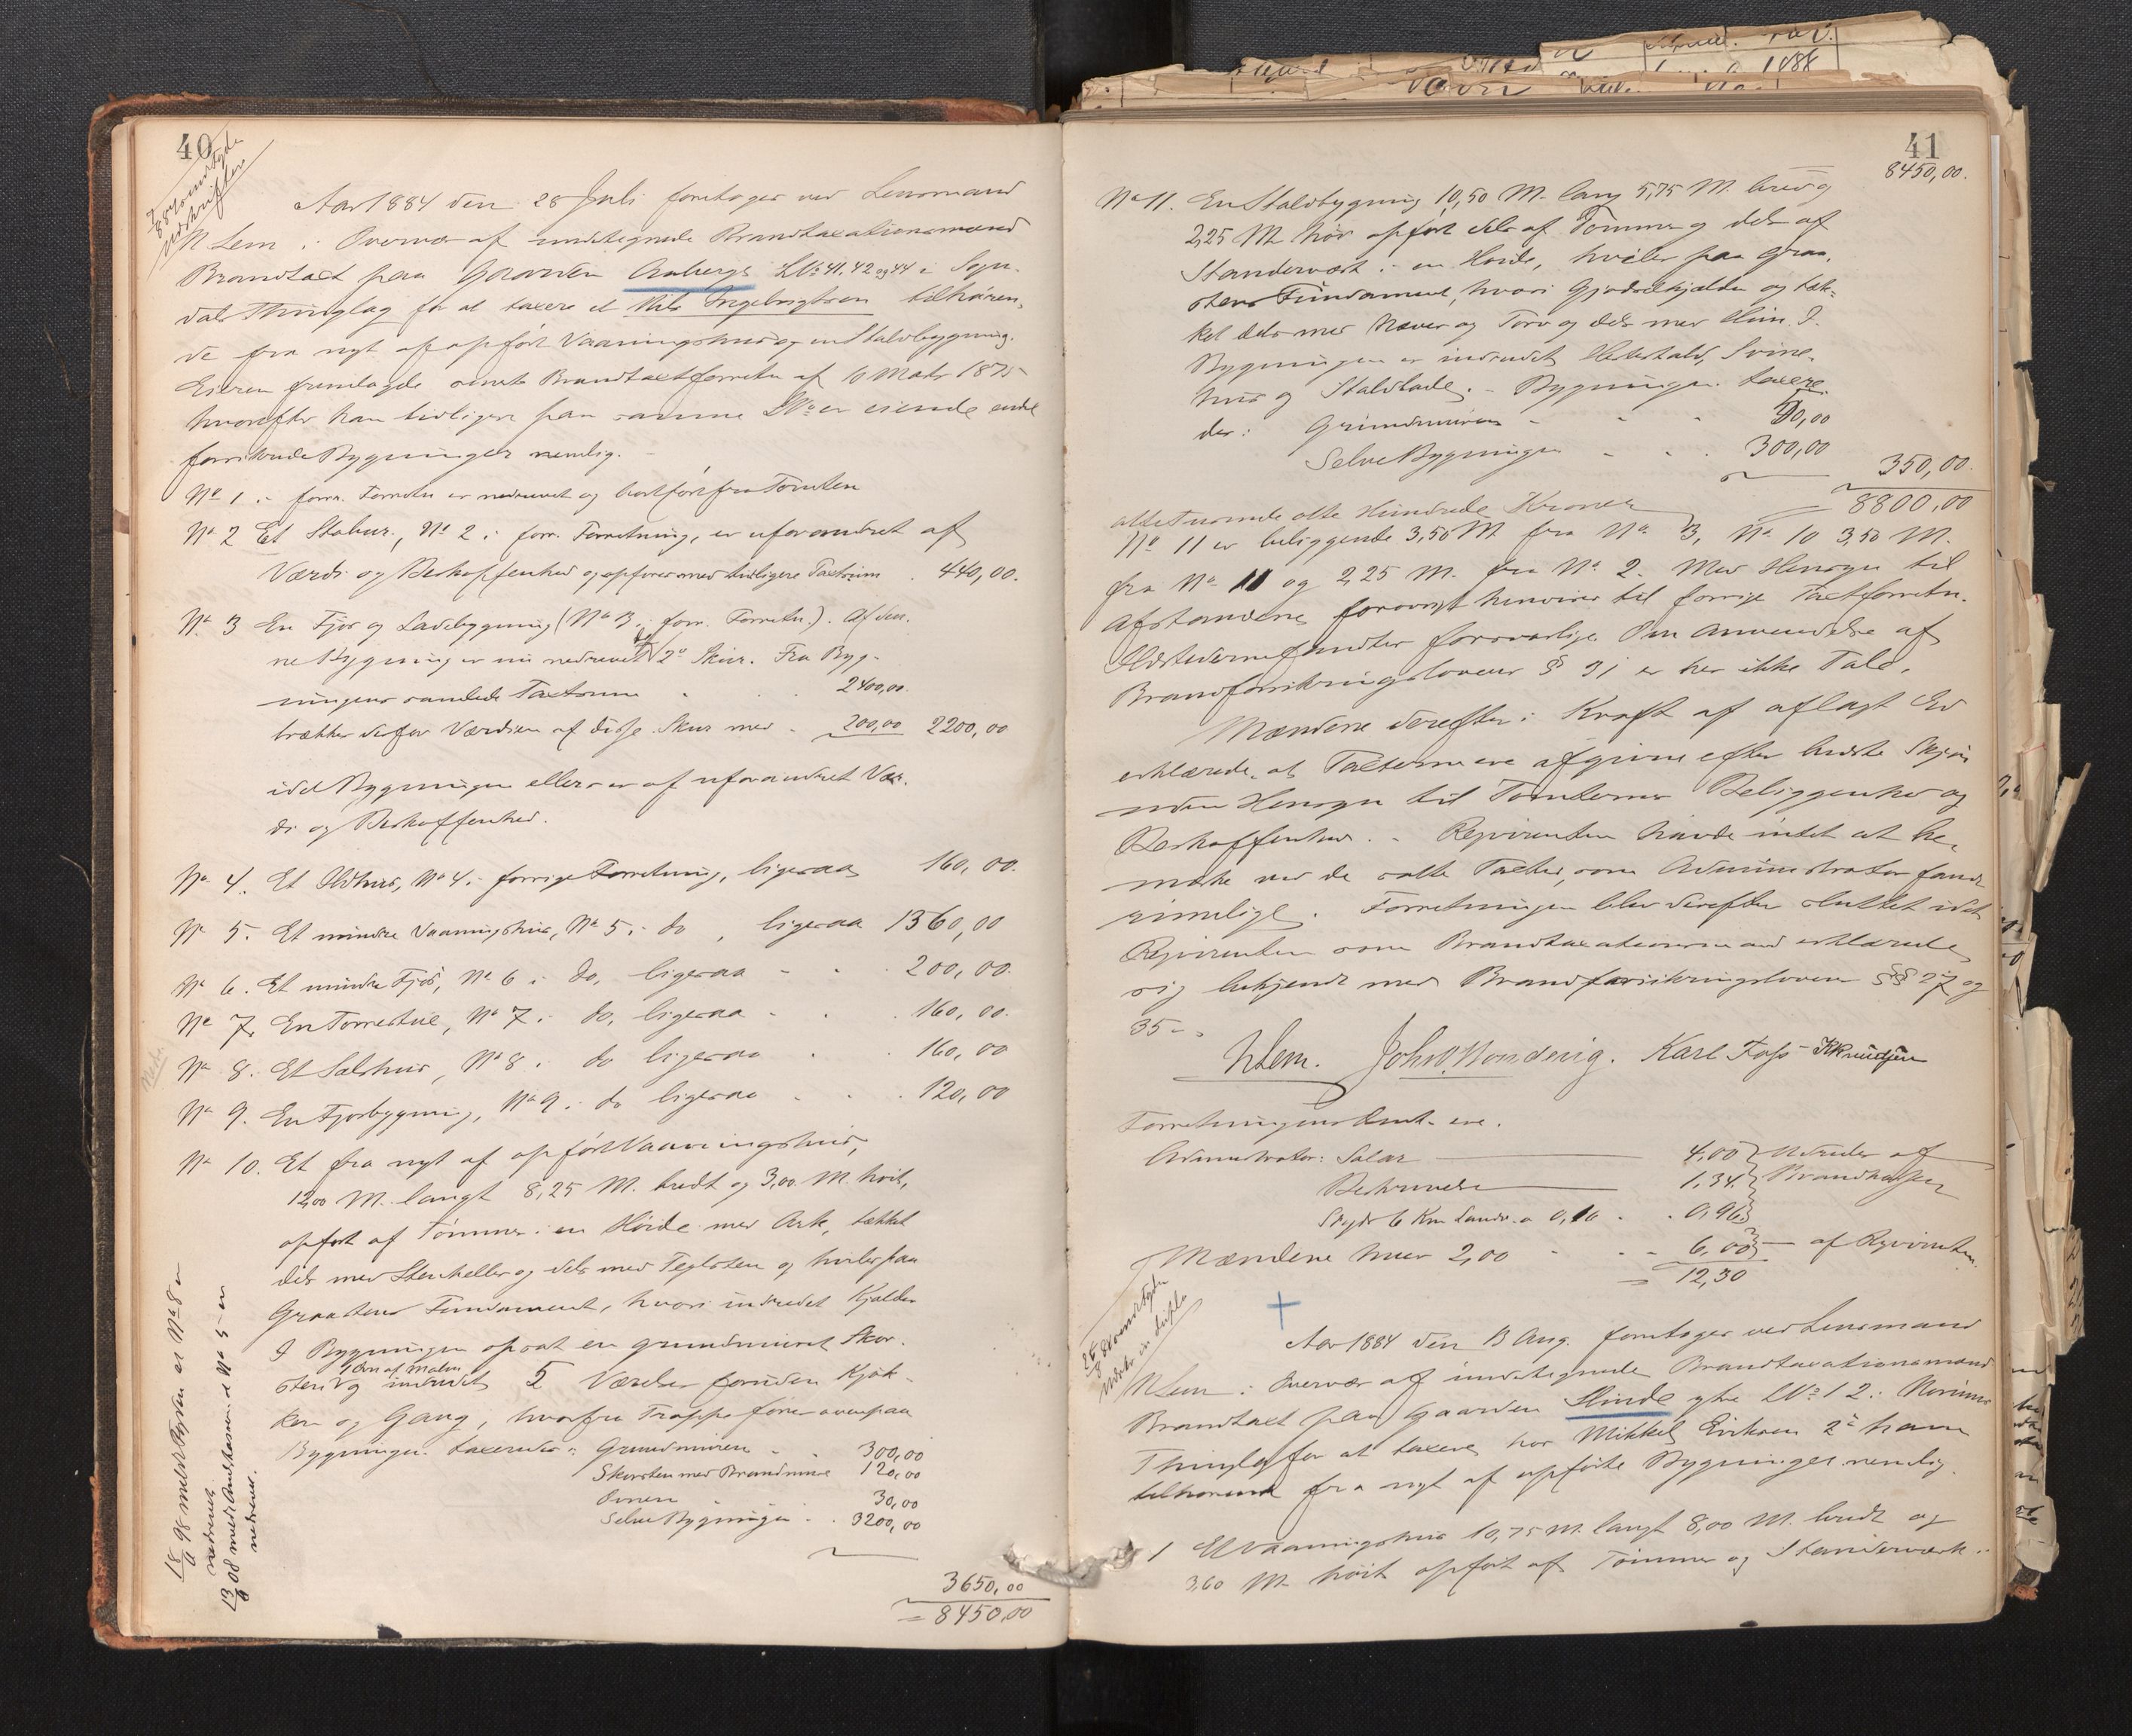 40
Aar 1884 den 28 Juli foretoges ved Lensmand
N Lem i Overvær af undertegnede Brandtaxationsmænd
Brandtaxt paa Gaarden Aaberge LNo 41, 42 og 44 i Sogn-
dals Thinglag for at taxere et Nils Ingebrigtsen tilhøren-
de fra nyt af opført Vaaningshus og en Staldbygning.
Eieren fremlagde seneste Brandtaxtforretn. af 10 Mats 1875
hvorefter han tidligere paa samme LNo er eiende endel
forsikrede Bygninger nemlig.
No 1 i forr. Forretn er nedrevet og bortført fra Tomten
No 2 Et Stabur, No 2 i forr. Forretning, er uforandret af
Værdi og Beskaffenhed og opføres med tidligere Taxtsum . 440,00.
No 3 En Fjøs og Ladebygning (No 3 i forr. Forretn.). Af den-
ne Bygning er nu nedrevet 2de Skur. Fra Byg-
ningens samlede Taxtsum . . 2400,00
trækkes derfor Værdien af disse Skur med - 200,00 2200,00
idet Bygningen ellers er af uforandret Vær-
di og Beskaffenhed.
No 4. Et Ildhus, No 4 i forrige Forretning, ligesaa 160,00.
No 5. Et mindre Vaaningshus, No 5 i do , ligesaa 1360,00
No 6. Et mindre Fjøs, No 6 i do, ligesaa - - 200,00.
No 7. En Torrestue, No 7 i do, ligesaa - . 160,00.
No 8. Et Sælshus, No 8 i do ligesaa . . 160,00
No 9. En Fjøsbygning, No 9 i do ligesaa . . 120,00
No 10. Et fra nyt af opført Vaaningshus,
12,00 M. langt 8,25 M. bredt og 3,00 M. høit,
opført af Tømmer i en Høide med Ark, tækket
dels med Stenheller og dels med Teglsten og hviler paa
Graastens Fundament, hvori indredet Kjælder
I Bygningen opsat en grundmuret Skor-
1 Ovn af Malm
sten og indredet 5 Værelser foruden Kjøk-
ken og Gang, hvorfra Trappe fører ovenpaa
Bygningen taxeredes: Grundmuren - . 300,00
Skorsten med Brandmure 120,00
Ovnen 30,00
Selve Bygningen . . 3200,00
3650,00
= 8450,00
18/9 98 meldt Styrtes at No 8 er
nedrevet
13/8 08 meldt at No 5 er
nedrevet.
41
8450,00.
No 11. En Staldbygning 10,50 M. lang 5,75 M. bred og
2,25 M. høi opført dels af Tømmer og dels af
Standerværk i en Høide, hviler paa Graa-
stens Fundament, hvori Gjødselkjælder og tæk-
ket dels med Næver og Torv og dels med Hun. I
Bygningen er indredet Hestestald, Svine-
hus og Staldlade. - Bygningen taxere-
des: Grundmuren - - - 50,00
Selve Bygningen - - . 300,00
350,00.
= 8800,00
ottetusende otte Hundrede Kroner
No 11 er beliggende 3,50 M fra No 3, No 10 3,50 M.
fra No 11 og 2,25 M. fra No 2. Med Hensyn til
Afstandene forøvrigt henvises til forrige Taxtforretn.
Ildstederne fandtes forsvarlige. Om Anvendelse af
Brandforsikringslovens § 31 er her ikke Tale.
Mændene derefter i Kraft af aflagt Ed
erklærede, at Taxterne ere afgivne efter bedste Skjøn
uden Hensyn til Tomternes Beliggenhed og
Beskaffenhed. - Rejvirenten havde intet at be-
mærke ved de satte Taxter, som Administrator fandt
rimelige. Forretningen blev derefter sluttet idet
Rejvirenten som Brandtaxationsmænd erklærede
sig bekjendt med Brandforsikringslovens §§ 27 og
35 -
NLem. Joh. O. Nondvig. Karl Foss KKnudsen
Forretningens Omk. ere.
Administrator: Salær 4,00 Udredes af
Beskrivelse 1,34 Brandkassen
Skyds 6 Km Landv. a 0,16 . . 0,96
Mændene hver 2,00 - . - 6,00 af Rejvirenten
= 12,30
Aar 1884 den 13 Aug. foretoges ved Lensmand
NLem i Overvær af undertegnede Brandtaxationsmænd
Brandtaxt paa Gaarden Slinde ytre LNo 12 i Norums
Thinglag for at taxere hos Mikkel Eriksen 2de ham
tilhørende fra nyt af opførte Bygninger nemlig.
1 Et Vaaningshus 10,75 M. langt 8,00 M. bredt og
3,60 M høit opført af Tømmer og Standerværk i